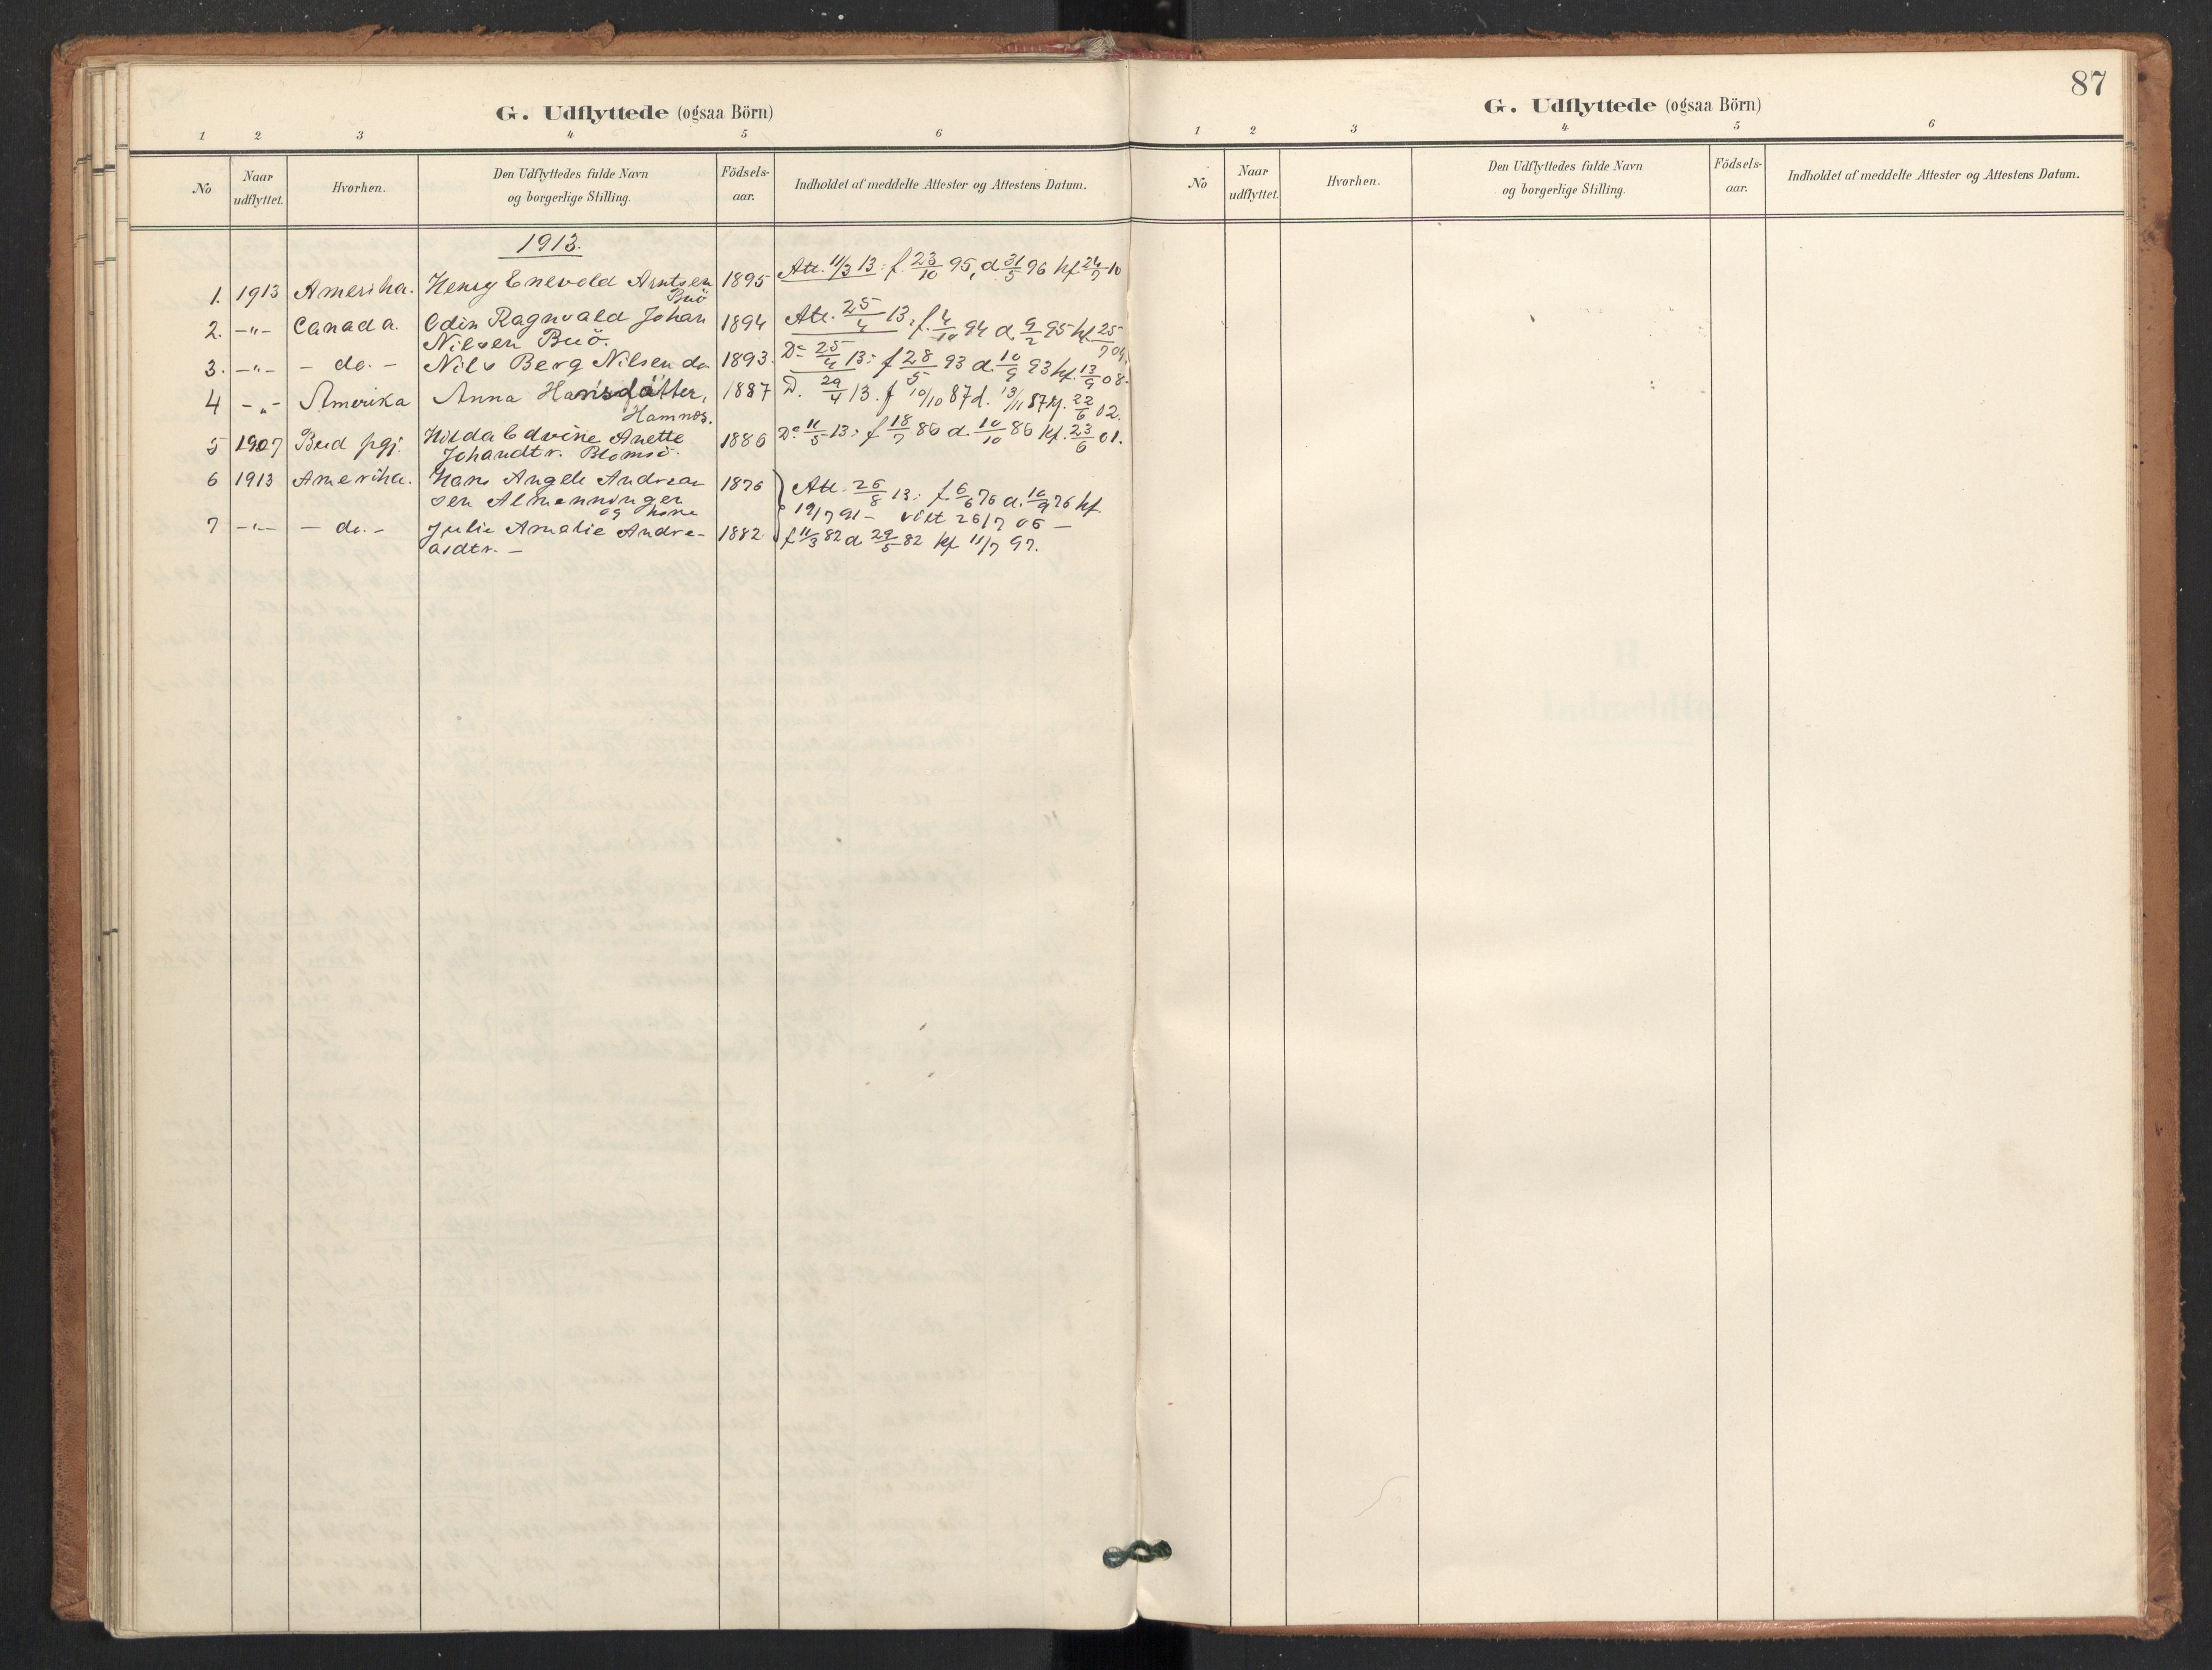 G. Udflyttede (ogsaa Börn)
1 2 3 4 5 6
No Naar udflyttet. Hvorhen. Den Udflyttedes fulde Navn og borgerlige Stilling. Födsels-aar. Indholdet af meddelte Attester og Attestens Datum.
1913.
1. 1913 Amerika. Henry Enevold Arntsen 1895 Att. 11/3 13: f. 23/10 95, d 31/5 96 kf 24/7 10
Buö
2. -"- Canada. Odin Ragnvald Johan 1894 Att. 25/4 13: f. 4/10 94 d. 9/2 95 kf 25/7 09.
Nilsen Buö.
3. -"- - do. - Nils Berg Nilsen do 1893. Do 25/4 13: f 28/5 93 d. 10/9 93 kf. 13/9 08.
4 -"- Amerika Anna Hansdatter, 1887 D. 29/4 13. f 10/10 87 d. 13/11 87 kf. 22/6 02.
Hamnøs.
5 1907 Bud pgj. Hilda Edvine Anette 1886 Do 11/5 13: f 18/7 86 d. 10/10 86 kf. 23/6 01.
Johandtr. Blomsö.
6 1913 Amerika. Hans Angell Andrea- 1876 Att. 26/8 13: f. 6/6 76 d. 10/9 76 kf.
sen Almenningen 19/7 91 - viet 26/7 06 -
og kone
7 -"- - do. - Julie Amalie Andre- 1882 f 11/3 82 d 29/5 82 kf 11/7 97.
asdtr. -
87
G. Udflyttede (ogsaa Börn)
1 2 3 4 5 6
No Naar udflyttet. Hvorhen. Den Udflyttedes fulde Navn og borgerlige Stilling. Födsels-aar. Indholdet af meddelte Attester og Attestens Datum.